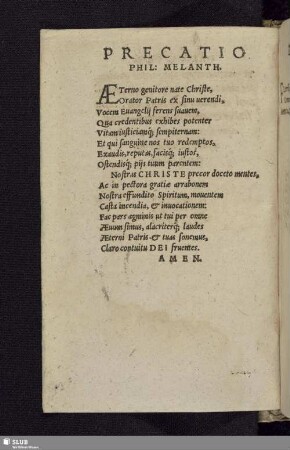 PRECATIO
PHIL: MELANTH.
ÆTerno genitore nate Christe,
Orator Patris ex sinu uerendi,
Vocem Euangelij ferens suauem,
Qua credentibus exhibes potenter
Vitam iusticiamq; sempiternam:
Et qui sanguine nos tuo redemptos,
Exaudis, reputas, facisq; iustos,
Ostendisq; pijs tuum parentem:
Nostras CHRISTE precor doceto mentes,
Ac in pectora gratiæ arrabonem
Nostra effundito Spiritum, mouentem
Casta incendia, & inuocationem:
Fac pars agminis ut tui per omne
Æuum simus, alacriterq; laudes
Æterni Patris & tuas sonemus,
Claro contuitu DEI fruentes.
AMEN.
SLUB